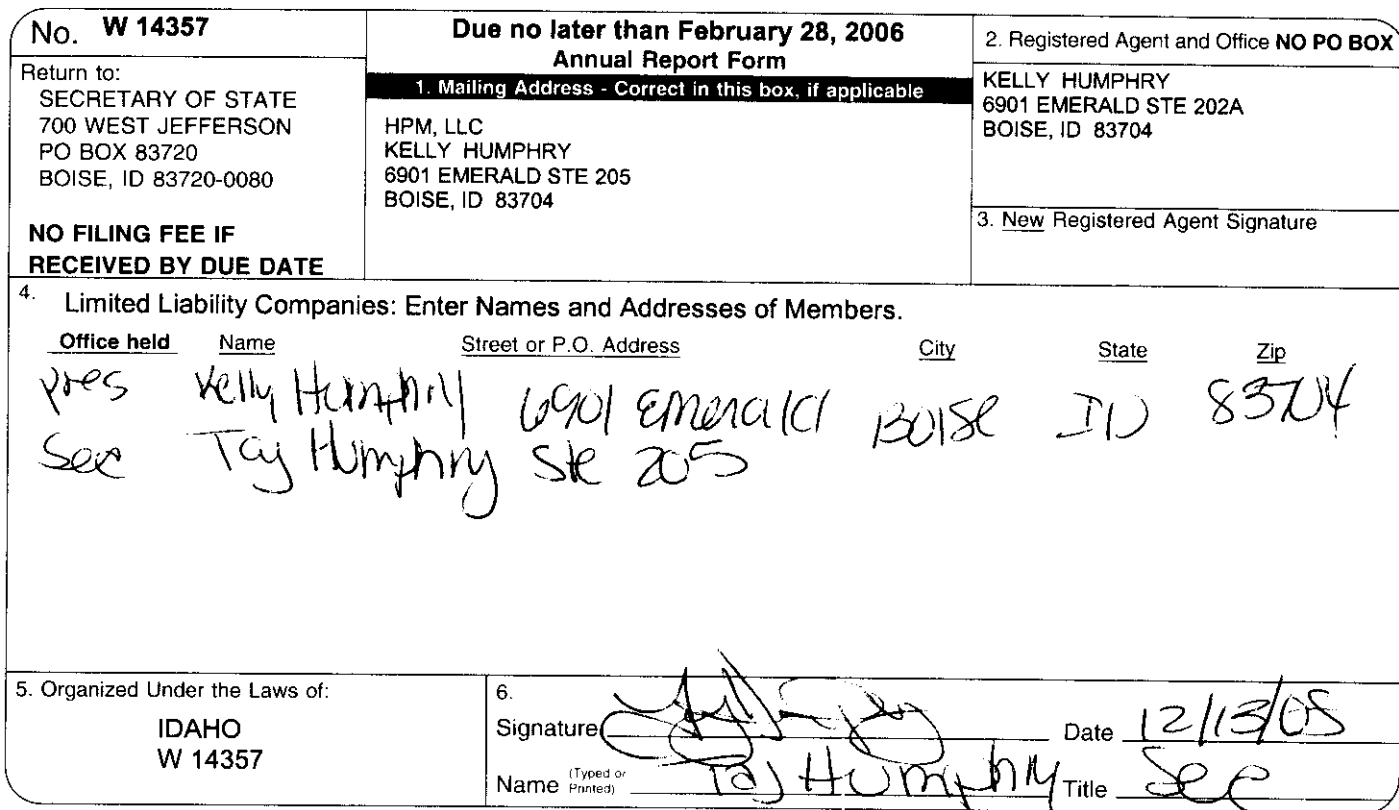 No. W 14357
Return to:
SECRETARY OF STATE
700 WEST JEFFERSON
PO BOX 83720
BOISE, ID 83720-0080
NO FILING FEE IF
RECEIVED BY DUE DATE
Due no later than February 28, 2006
Annual Report Form
1. Mailing Address - Correct in this box, if applicable
HPM, LLC
KELLY HUMPHRY
6901 EMERALD STE 205
BOISE, ID 83704
2. Registered Agent and Office NO PO BOX
KELLY HUMPHRY
6901 EMERALD STE 202A
BOISE, ID 83704
3. New Registered Agent Signature
4. Limited Liability Companies: Enter Names and Addresses of Members.
Office held Name Street or P.O. Address City State Zip
pres Kelly Humphry 6901 Emerald BOISE ID 83704
Sec Taj Humphry Ste 205
5. Organized Under the Laws of:
IDAHO
W 14357
6.
Signature Date 12/13/05
Name (Typed or Printed) Taj Humphry Title Sec